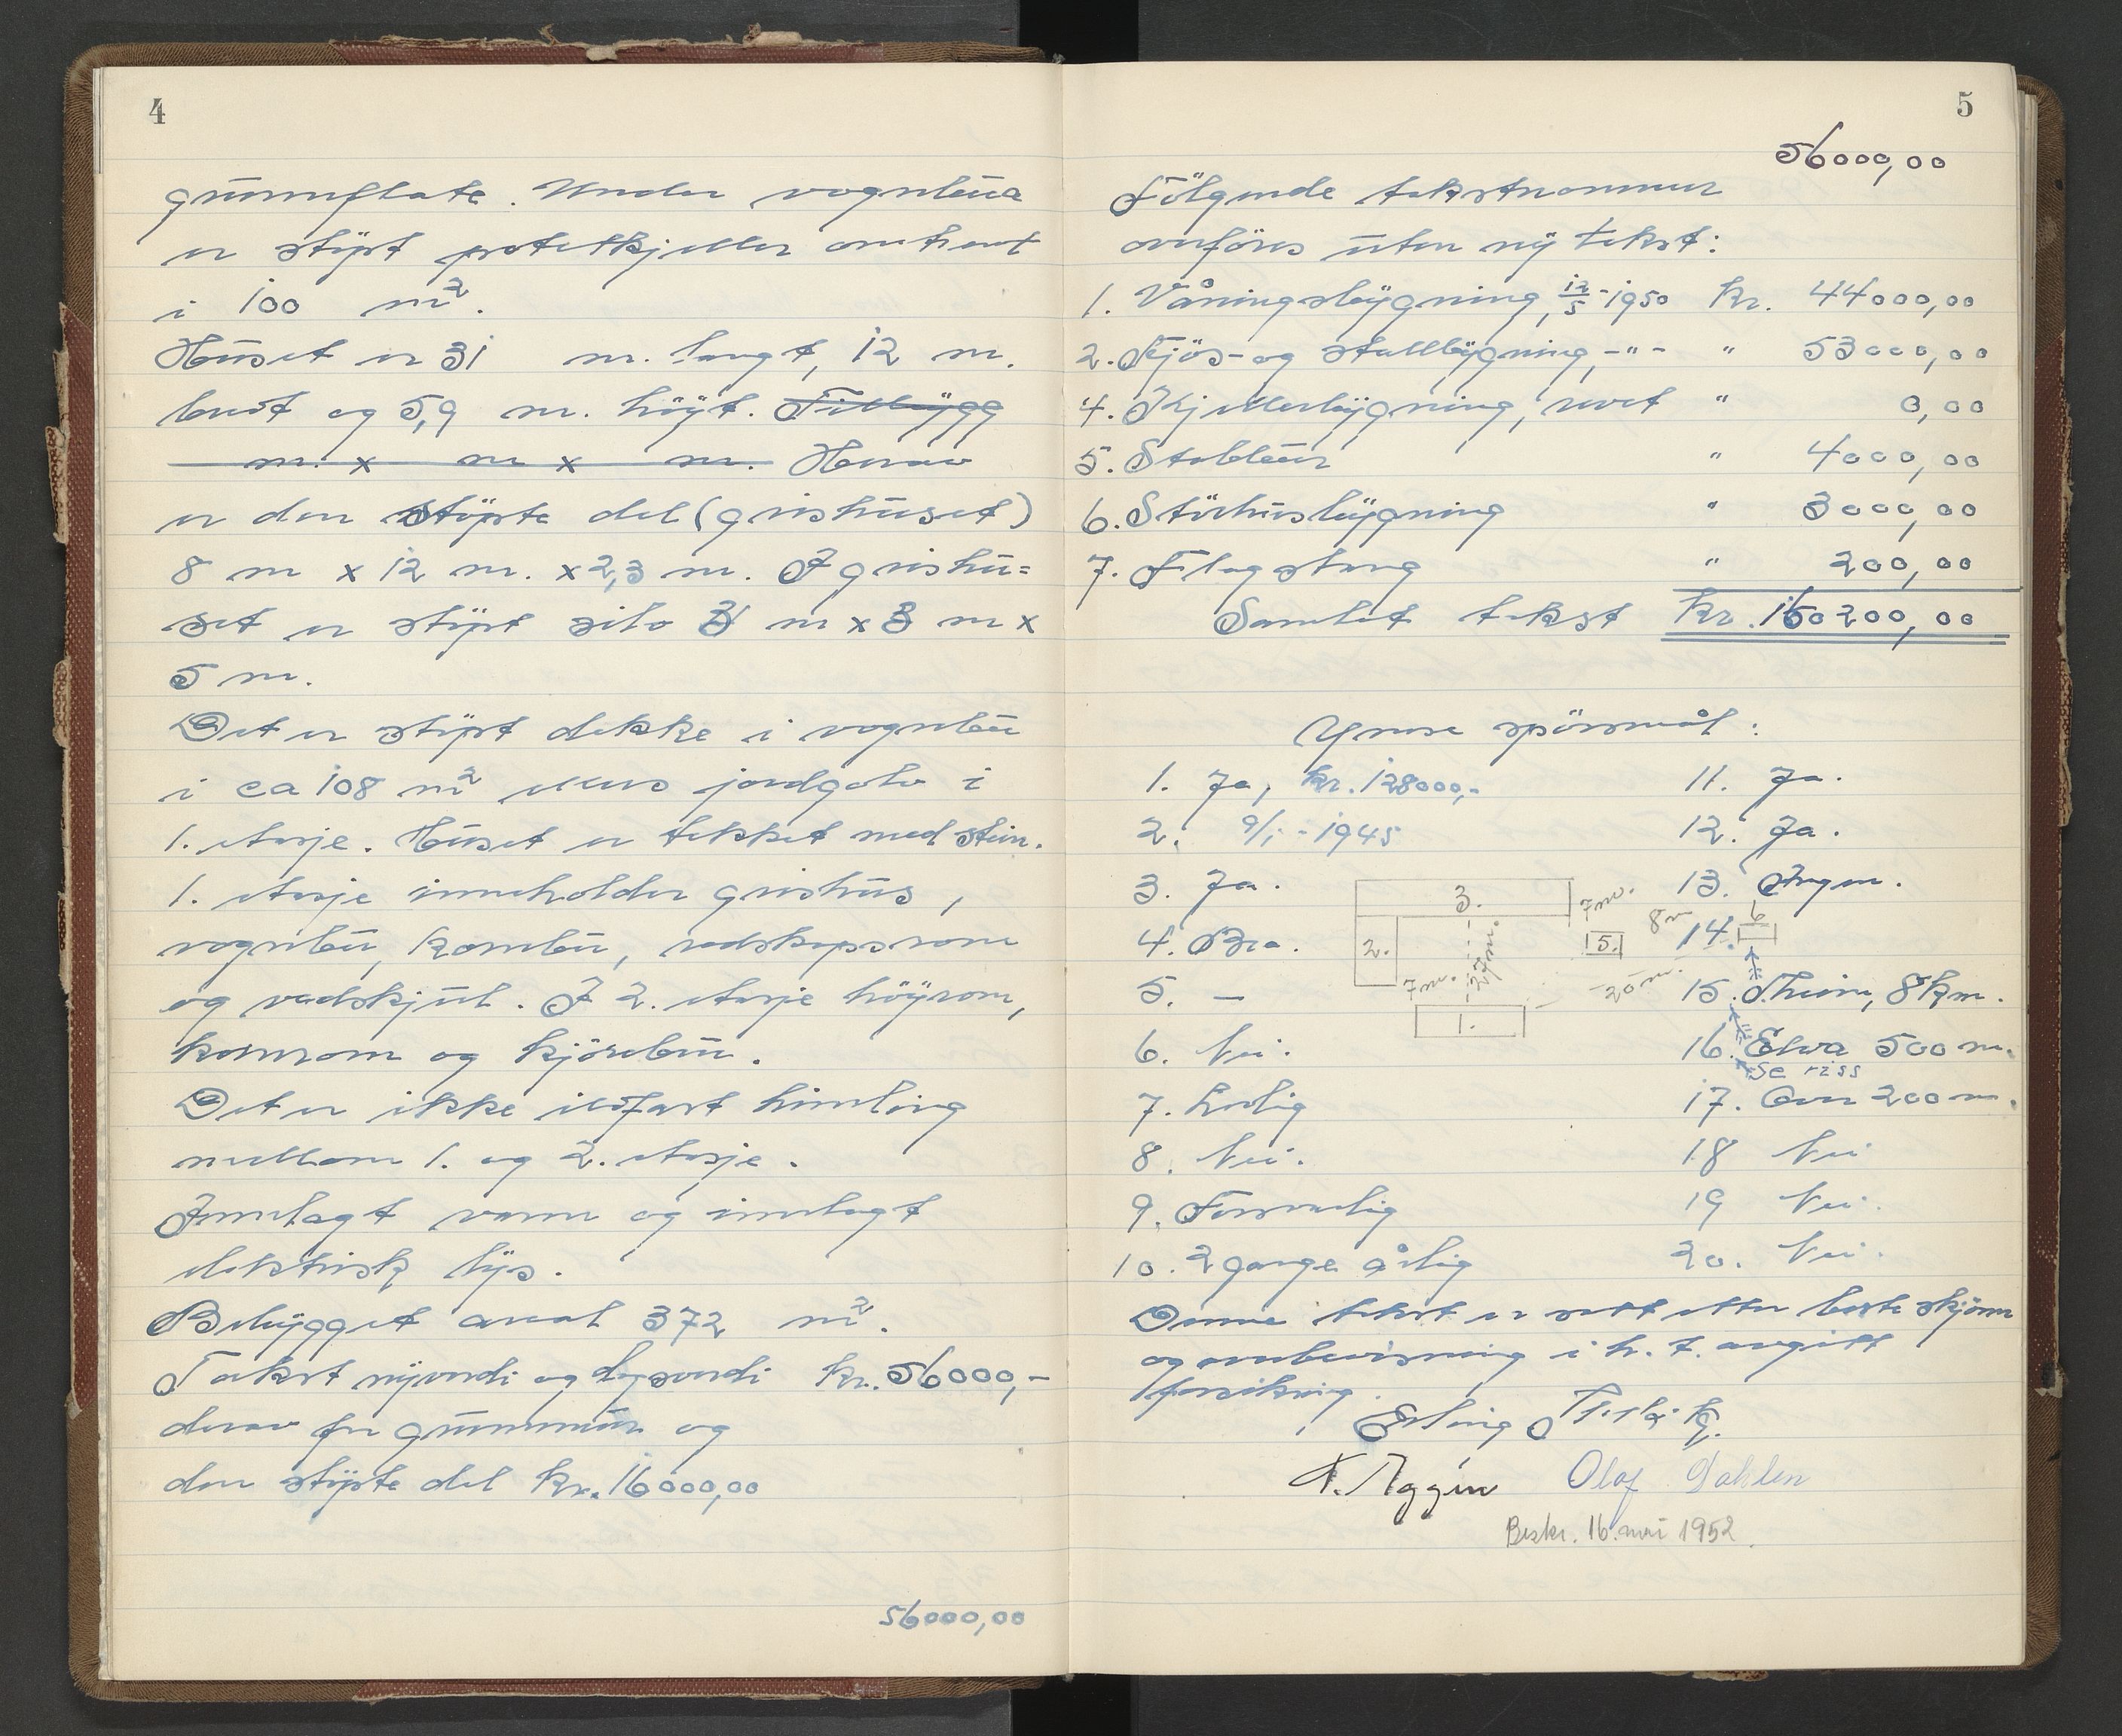 4
grunnflate. Under vognbua
er støpt potetkjeller omtrent
i 100 m².
Huset er 31 m. langt, 12 m.
bredt og 5,9 m. höyt. Tilbygg
m. x m x m. Herav
er den støpte del (grishuset)
8 m x 12 m. x 2,3 m. I grishu=
set er støpt silo 3 m x 3 m x
5 m.
Det er støpt dekke i vognbu
i ca 108 m² ellers jordgolv i
1. etasje. Huset er tekket med stein.
1. etasje inneholder grishus,
vognbu, kornbu, redskapsrom
og vedskjul. I 2. etasje höyrom,
kornrom og kjörebru.
Det er ikke ildfast himling
mellom 1. og 2. etasje.
Innlagt vann og innlagt
elektrisk lys.
Bebygget areal 372 m².
Takst nyverdi og dagsverdi kr. 56000,-
derav for grunnmur og
den støpte del kr. 16000,00
56000,00
5
56000,00
Følgende takstnommer
overföres uten ny takst:
1. Våningsbygning, 12/5-1950 kr. 44000,00
2. Fjös- og stallbygning, -"- " 53000,00
4. Kjellerbygning, revet " 0,00
5. Stabbur " 4000,00
6. Störhusbygning " 3000,00
7. Flagstang " 200,00
Samlet takst kr. 160200,00
Ymse spörsmål:
1. Ja, kr. 128000,-
2. 9/1 - 1945
3. Ja.
4. Bra.
5. —
6. Nei.
7. Lovlig
8. Nei.
9. Forsvarlig
10. 2 gange årlig
3.
2.
1.
5.
6
7 m.
8 m
7 m.
27 m.
20 m.
11. Ja.
12. Ja.
13. Ingen.
14.
15. Skeim, 8 km.
16. Elva 500 m.
Se riss
17. Over 200 m.
18 Nei
19 Nei.
20. Nei.
Denne takst er satt etter beste skjönn
og overbevisning i h. t. avgitt
forsikring.
Erling
K. Aggen Olaf Dahlen
Beskr. 16. mai 1952.